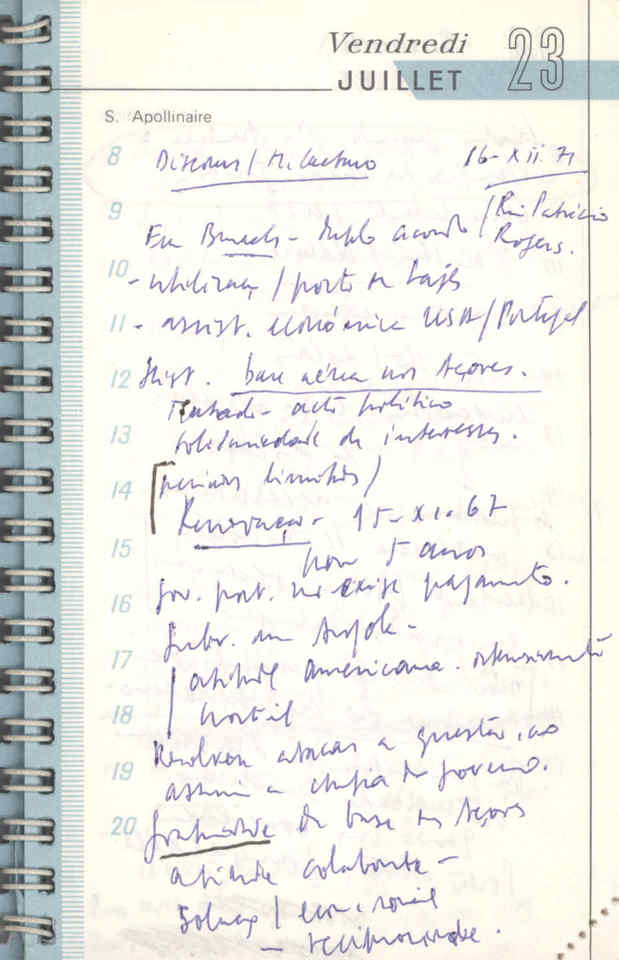 Vendredi 23
JUILLET
S. Apollinaire
8 Discurso / M. Caetano 16-XII-71
9 / Rui Patrício
Em Bruxelas - duplo acordo / Rogers.
10 - utilizaç / porto de Lajes
11 - assist. económica USA / Portugal
12 Hist. base aérea nos Açores.
Tratado - acto político
13 solidariedade de interesses.
14 períodos limitados /
Renovação - 15-XI-67
15 por 5 anos
Gov. port. não exige pagamento.
16
17 atitude americana. ostensivamente
18 hostil
Resolveu atacar a questão, ao
19 assumir a chefia do governo.
20 Gratuitidade da base dos Açores
atitude colaborante -
Soluç / econ. social
- reciprocidade.